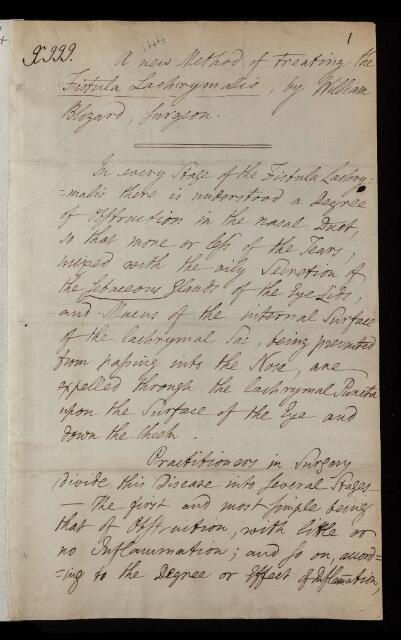 X 999.
144
1
A new Method of treating the
Fistula Lachrymalis, by William
Blizard, Surgeon.
In every Stage of the Fistula Lachry=
=malis there is understood a Degree
of Obstruction in the nasal Duct
so that more or less of the Tears,
mixed with the oily Secretion of
the sebaceous Glands of the Eye Lids,
and Mucus of the internal Surface
of the lachrymal Sac, being prevented
from passing into the Nose, are
expelled through the lachrymal Puncta
upon the Surface of the Eye and
down the Cheek.
Practitioners in Surgery
divide this Disease into several Stages
— the first and most simple being
that of Obstruction, with little or
no Inflammation; and so on, accord=
=ing to the Degree or Effect of Inflamation,